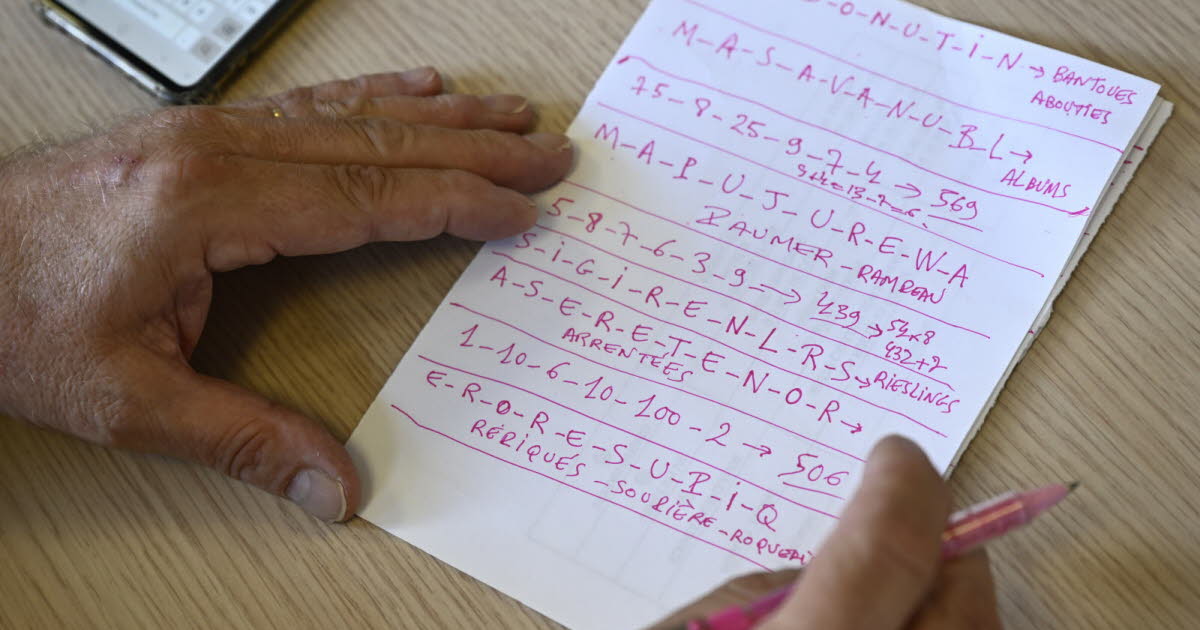 O-N-U-T-I-N → BANTOUES
ABOUTIES
M-A-S-A-V-A-N-U-B-L →
ALBUMS
75-8-25-9-7-4 → 569
9+4=13-7=6
M-A-P-U-J-U-R-E-W-A
RAUMER-RAMPEAU
5-8-7-6-3-9 => 439 → 54×8
432+7
S-I-G-I-R-E-N-L-R-S → RIESLINGS
A-S-E-R-E-T-E-N-O-R →
ARRENTÉES
1-10-6-10-100-2 → 506
E-R-O-R-E-S-U-P-I-Q
-SOURIÈRE-